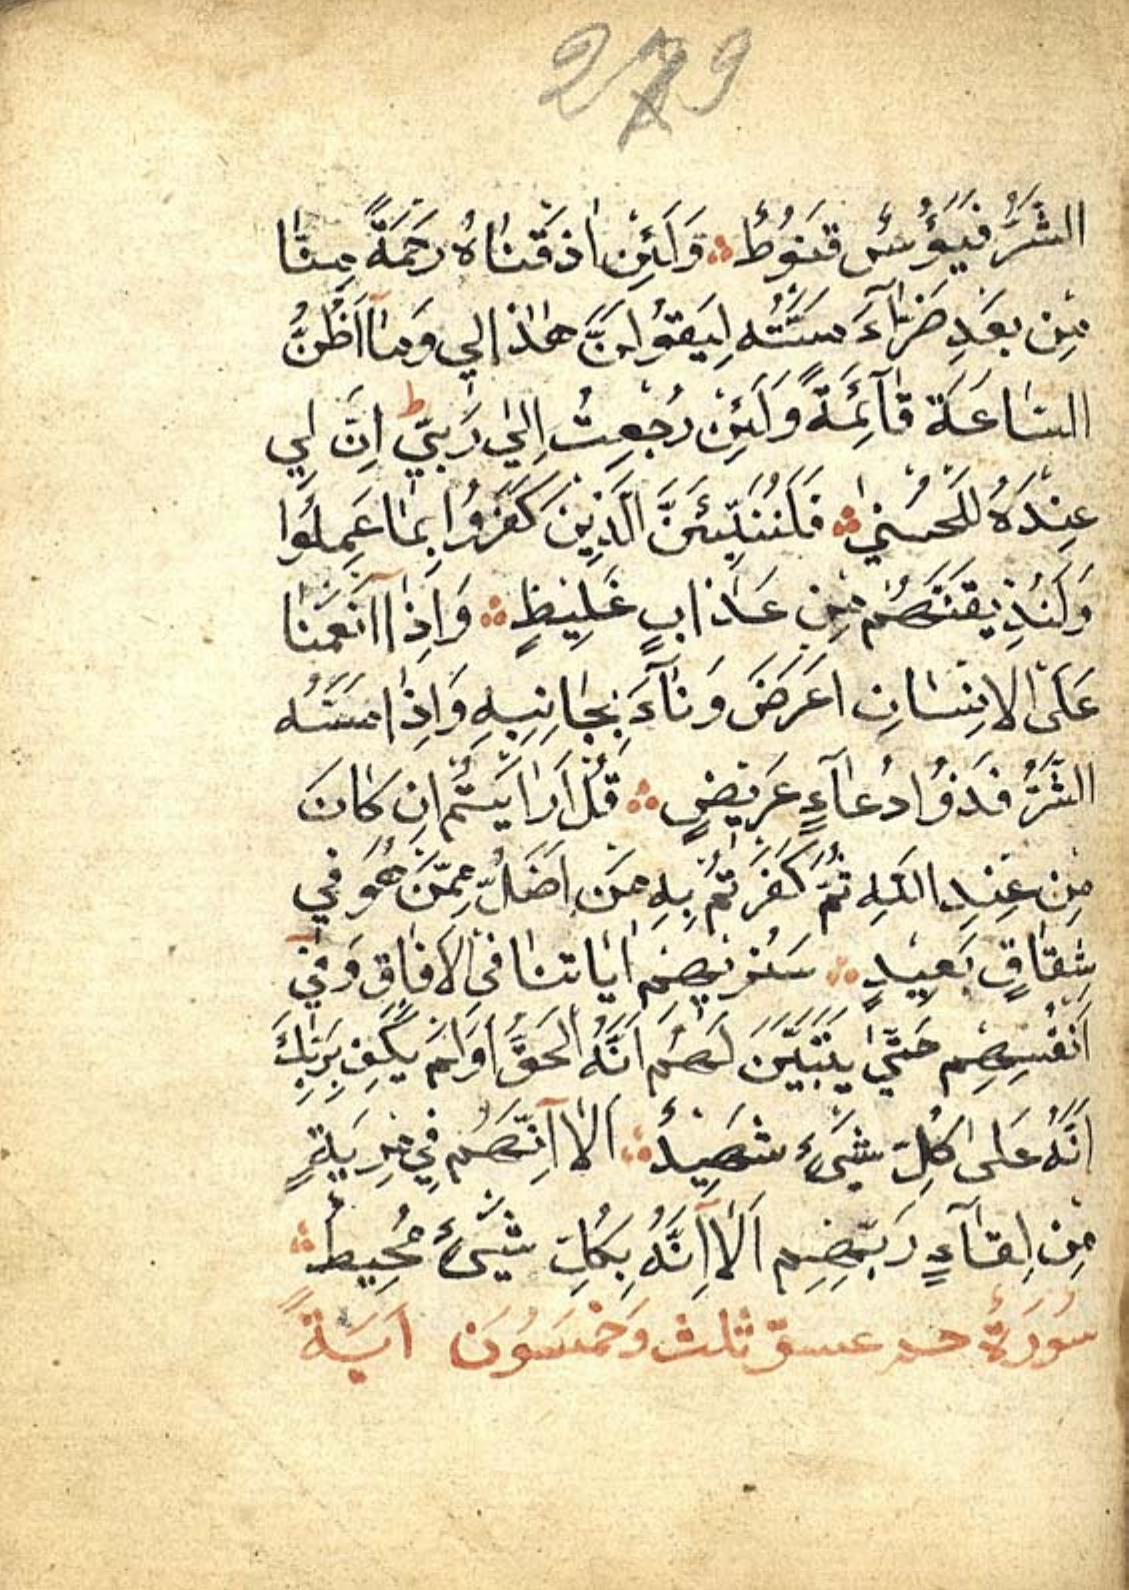 279
الشَّرُّ فَيَؤُسٌ قَنُوطٌ ۞ وَلَئِنْ اَذَقْنَاهُ رَحْمَةً مِنَّا
مِنْ بَعْدِ ضَرَّآءَ مَسَّتْهُ لَيَقُولَنَّ هٰذَا لِي وَمَآ اَظُنُّ
السَّاعَةَ قَآئِمَةً وَلَئِنْ رُجِعْتُ اِلٰى رَبِّيٓ ط اِنَّ لِي
عِنْدَهُ لَلْحُسْنٰى ۞ فَلَنُنَبِّئَنَّ الَّذِينَ كَفَرُوا بِمَا عَمِلُوا
وَلَنُذِيقَنَّهُمْ مِنْ عَذَابٍ غَلِيظٍ ۞ وَاِذَآ اَنْعَمْنَا
عَلَى الْاِنْسَانِ اَعْرَضَ وَنَآءَ بِجَانِبِهِ وَاِذَا مَسَّهُ
الشَّرُّ فَذُوا دُعَآءٍ عَرِيضٍ ۞ قُلْ اَرَاَيْتُمْ اِنْ كَانَ
مِنْ عِنْدِ اللّٰهِ ثُمَّ كَفَرْتُمْ بِهِ مَنْ اَضَلُّ مِمَّنْ هُوَ فِي
شِقَاقٍ بَعِيدٍ ۞ سَنُرِيهِمْ اٰيَاتِنَا فِي الْاٰفَاقِ وَفِيٓ
اَنْفُسِهِمْ حَتّٰى يَتَبَيَّنَ لَهُمْ اَنَّهُ الْحَقُّ اَوَلَمْ يَكْفِ بِرَبِّكَ
اَنَّهُ عَلٰى كُلِّ شَيْءٍ شَهِيدٌ ۞ اَلَآ اِنَّهُمْ فِي مِرْيَةٍ
مِنْ لِقَآءِ رَبِّهِمْ اَلَآ اِنَّهُ بِكُلِّ شَيْءٍ مُحِيطٌ ۞
سُورَةُ حم عسق ثلث وَخَمْسُونَ اٰيَةً